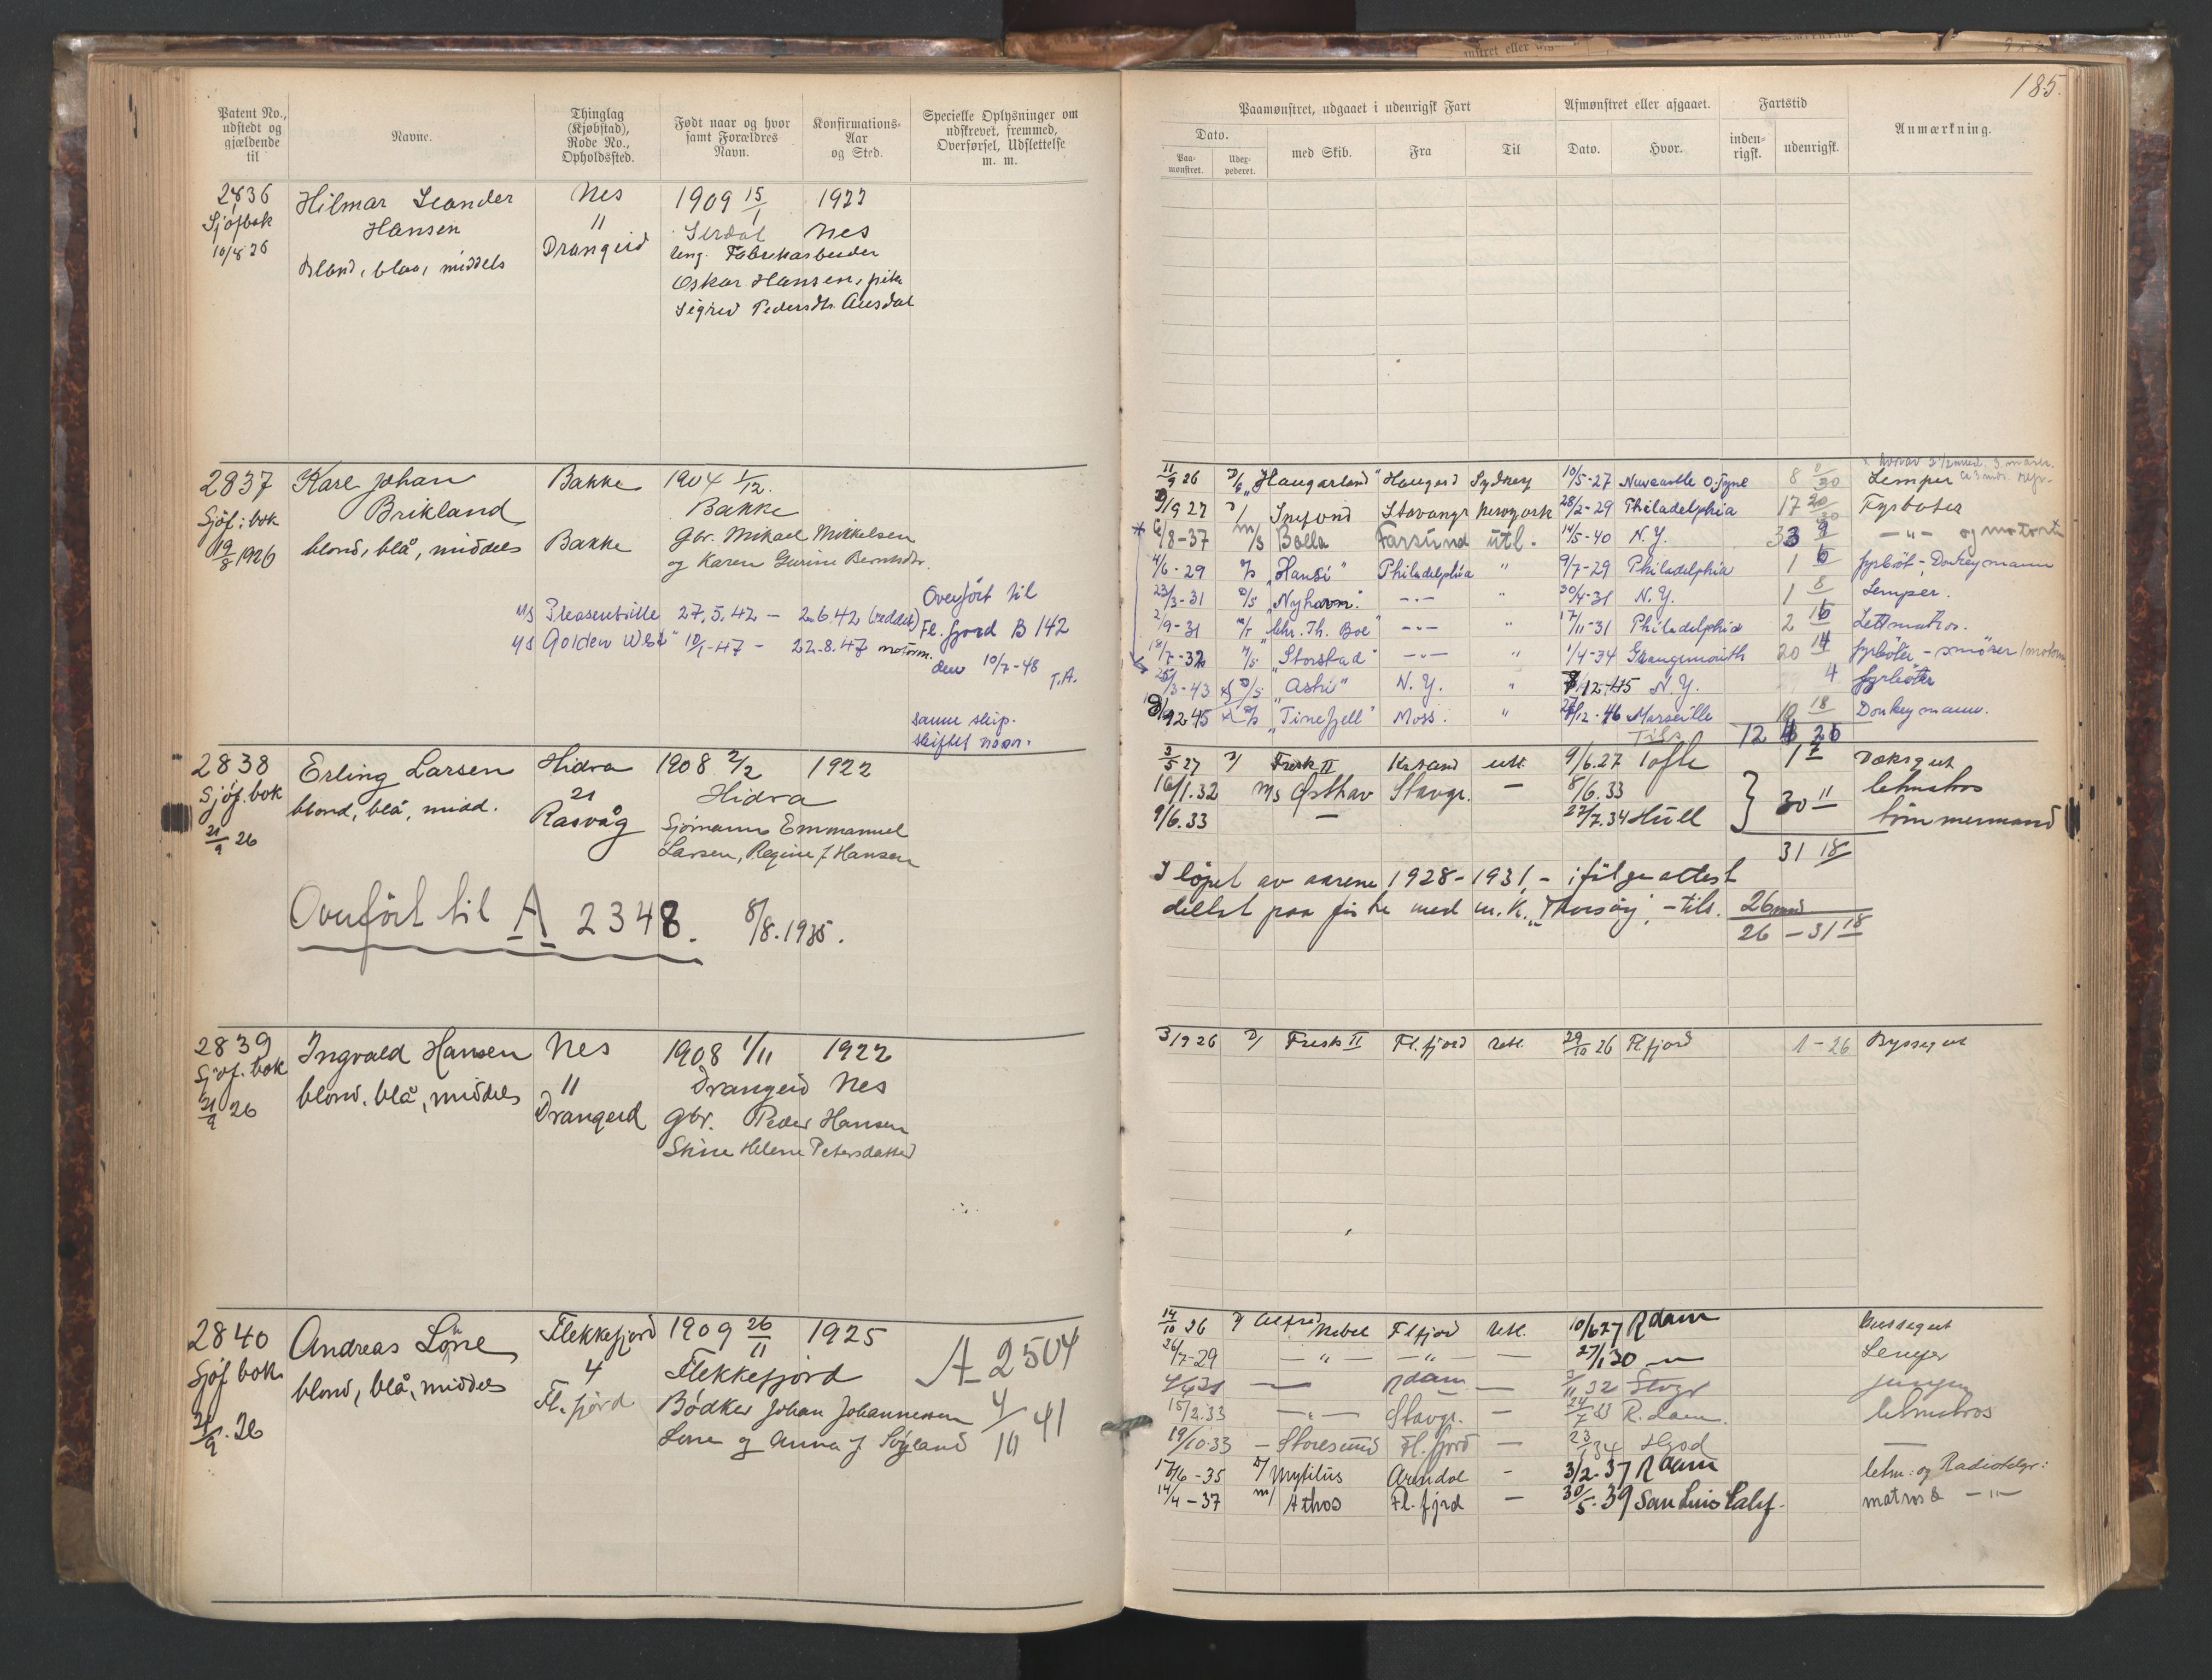 185.
Patent No., udstedt og gjældende til
Navne.
Thinglag (Kjøbstad), Rode No., Opholdssted.
Født naar og hvor samt Forældres Navn.
Konfirmations-Aar og Sted.
Specielle Oplysninger om udskrevet, fremmed, Overførsel, Udslettelse m. m.
Paamønstret, udgaaet i udenrigsk Fart
Afmønstret eller afgaaet.
Fartstid
Anmærkning.
Dato.
Paa-mønstret.
med Skib.
Fra
Til
Dato.
Hvor.
inden-rigsk.
udenrigsk.
2836 Hilmar Leander Nes 1909 15/1 1922
Sjöfbok Hansen 11 Sirdal Nes
10/8 26 Blond, blaa, middels Drangeid ung. Fabrikarbeider
Oskar Hansen, pike
Sigrid Pedersdtr. Ausdal
2837 Karl Johan Bakke 1904 1/12.
Sjöf: bok Brikland Bakke
19/8 1926 blond, blå, middels Bakke Gbr. Mikael Mikkelsen
og Karen Gurine Berntsdtr.
Overfört til
Fl. fjord B 142
den 10/7-48 T.A.
M/S Pleasentville 27.5.42 - 2.6.42 (reddet)
M/S Golden West 10/1-47 - 22.8.47 motorm.
samme skip.
skiftet navn.
11/9 26 "Haugarland" Haugesd Sydney 10/5-27 Newcastle o Tyne 8 Lemper
9/9 27 Snefond Stavangr Newyork 28/2-29 Philadelphia 17 20/30 Fyrböter
6/8-37 M/S Bolla Farsund utl. 14/5-40 N.Y. 33 9 -"- og motorm
4/6-29 "Hansi" Philadelphia " 9/7-29 Philadelphia 1 6 fyrböt-Donkeymann
23/3-31 D/S "Nyhavn" -"- " 30/4-31 N.Y. 1 8 Lemper.
2/9-31 "Chr. Th. Boe" -"- " 17/11-31 Philadelphia 2 16 Lettmatros.
18/7-32 "Storstad" -"- " 1/4-34 Grangemouth 20 14 fyrböter - smörer/motorm
25/3-43 D/S "Aski" N.Y. " 12-45 N.Y. 4 fyrböter
12 45 "Tinefjell" Moss. " 12-46 Marseille 18 Donkeymann.
Tils
2838 Erling Larsen Hidra 1908 2/2 1922
Sjöf. bok blond, blå, midd. 21 Hidra
21/9 26 Rasvåg Sjömann Emmanuel
Larsen, Regine f Hansen
Overfört til A 2348. 8/8.1935.
3/5 27 Fresk II Krsand utl. 9/6.27 Tofte 1 7 Dæksgut
16/1.32 M/S Østhav Stavgr. - 8/6.33 letmatros
9/6.33 - 27/7.34 Hull 30 11 tömmermand
31 18
I löpet av aarene 1928-1931, - ifölge attest
deltat paa fiske med m.k. "Thorsöy", - tils. 26 mnd
26 - 31 18
2839 Ingvald Hansen Nes 1908 1/11 1922
Sjöf. bok blond. blå, middels 11 Drangeid Nes
21/9 26 Drangeid Gbr. Peder Hansen
Stine Helene Petersdatter
3/9 26 Fresk II Fl.fjord utl. 29/10 26 Flfjord 1-26 Byssegut
2840 Andreas Löne Flekkefjord 1909 26/11 1925
Sjöf bok blond, blå, middels 4 Flekkefjord
21/9.26 Fl.fjord Bödker Johan Johannesen
Lone og Anna f Söyland
A 2504
4/10 41
14/10 26 Alfred Nobel Flfjord utl. 10/6 27 Rdam Byssegut
26/7-29 -"- -"- - 27/1 30 -"- Lemper
Rdam - 32 Stvgr jungm
15/2.33 -"- Stavgr. - 24/7 33 R.dam. letmatros
19/10.33 - Storesund Fl.fjord - 23/1 34 Hgsd -
17/6-35 Mytilus Arendal - 3/2.37 Rdam letm: og Radiotelgr:
14/4-37 M/ Athos Fl.fjrd - 30/5.39 San Luis Calif. matros & -"-